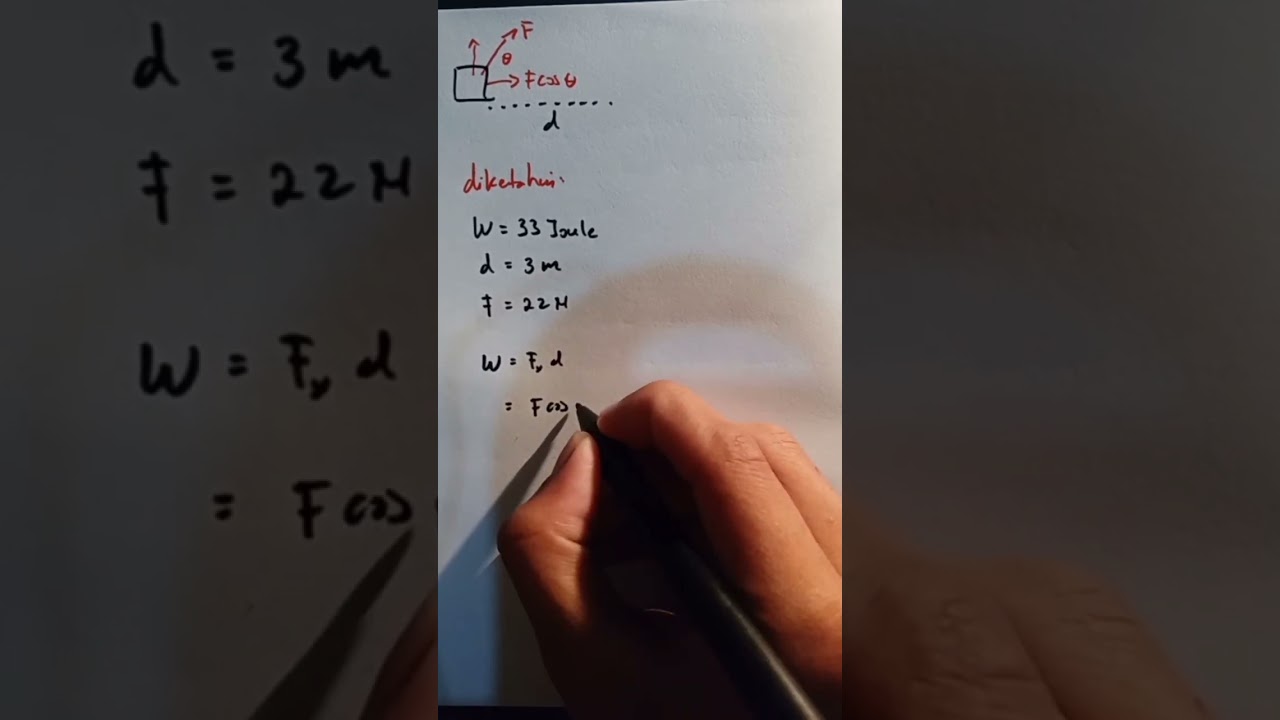 F
θ
F cos θ
d
diketahui:
W = 33 Joule
d = 3 m
F = 22 N
W = Fx d
= F cos